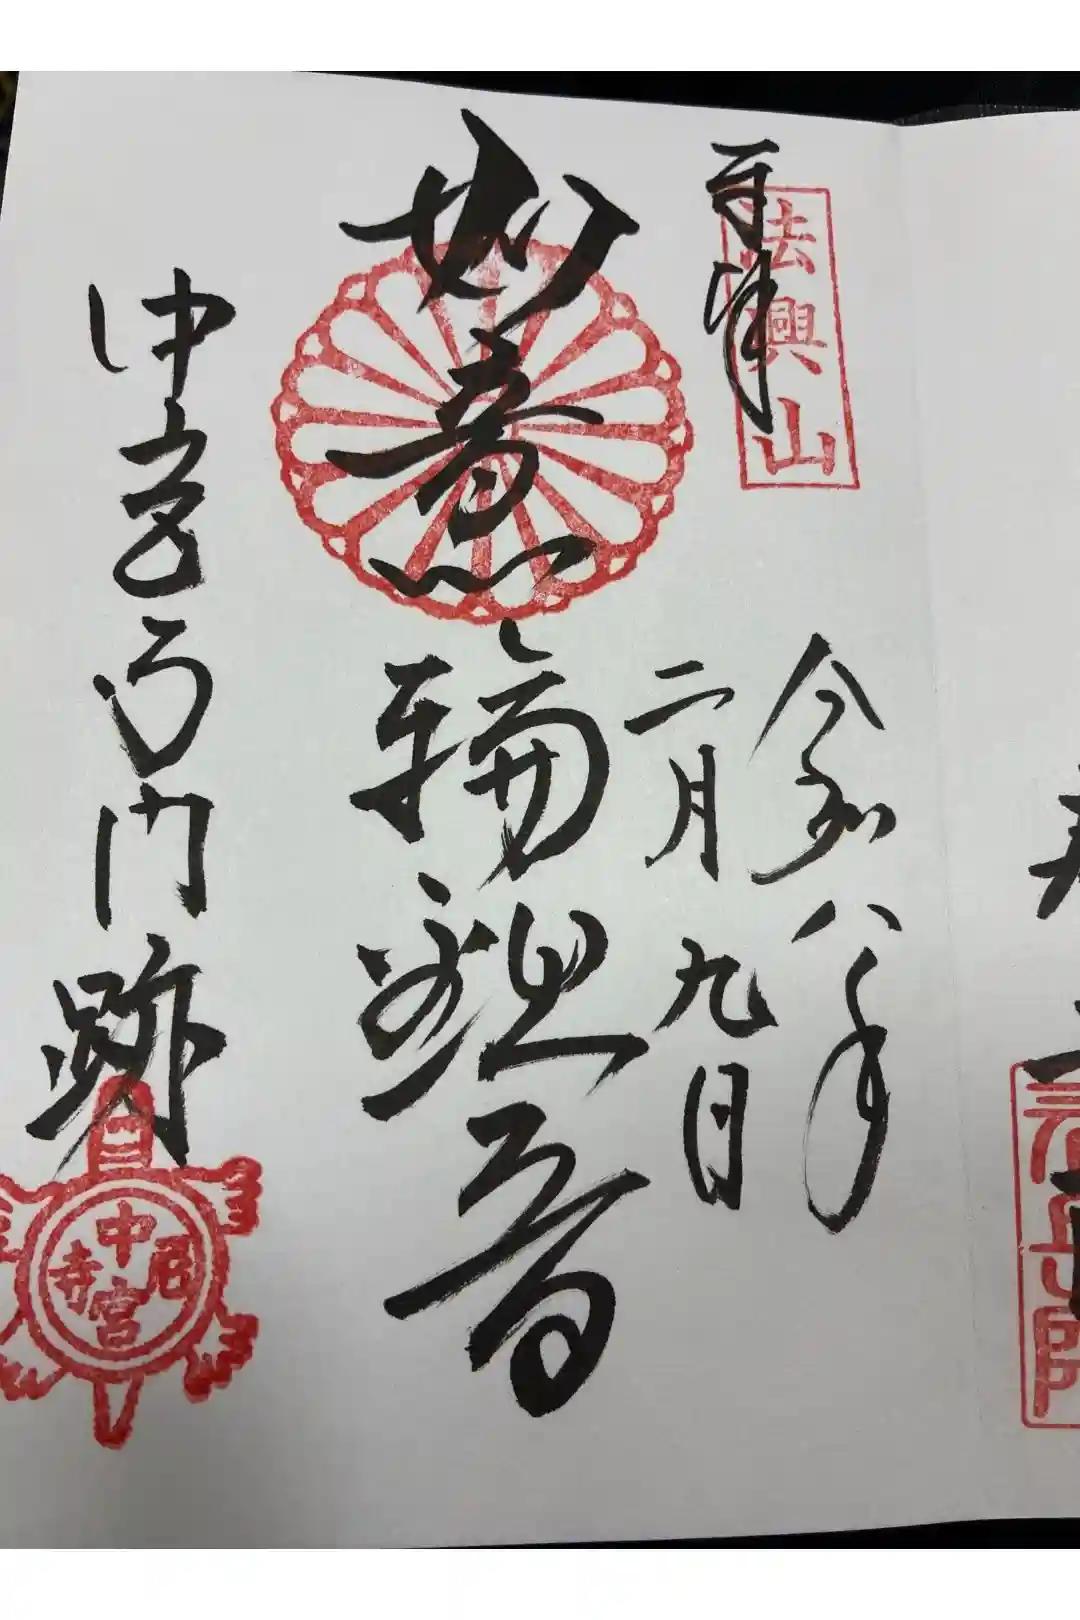 奉拝
法興山
令和八年
二月九日
如意輪観音
中宮寺門跡
中宮尼寺